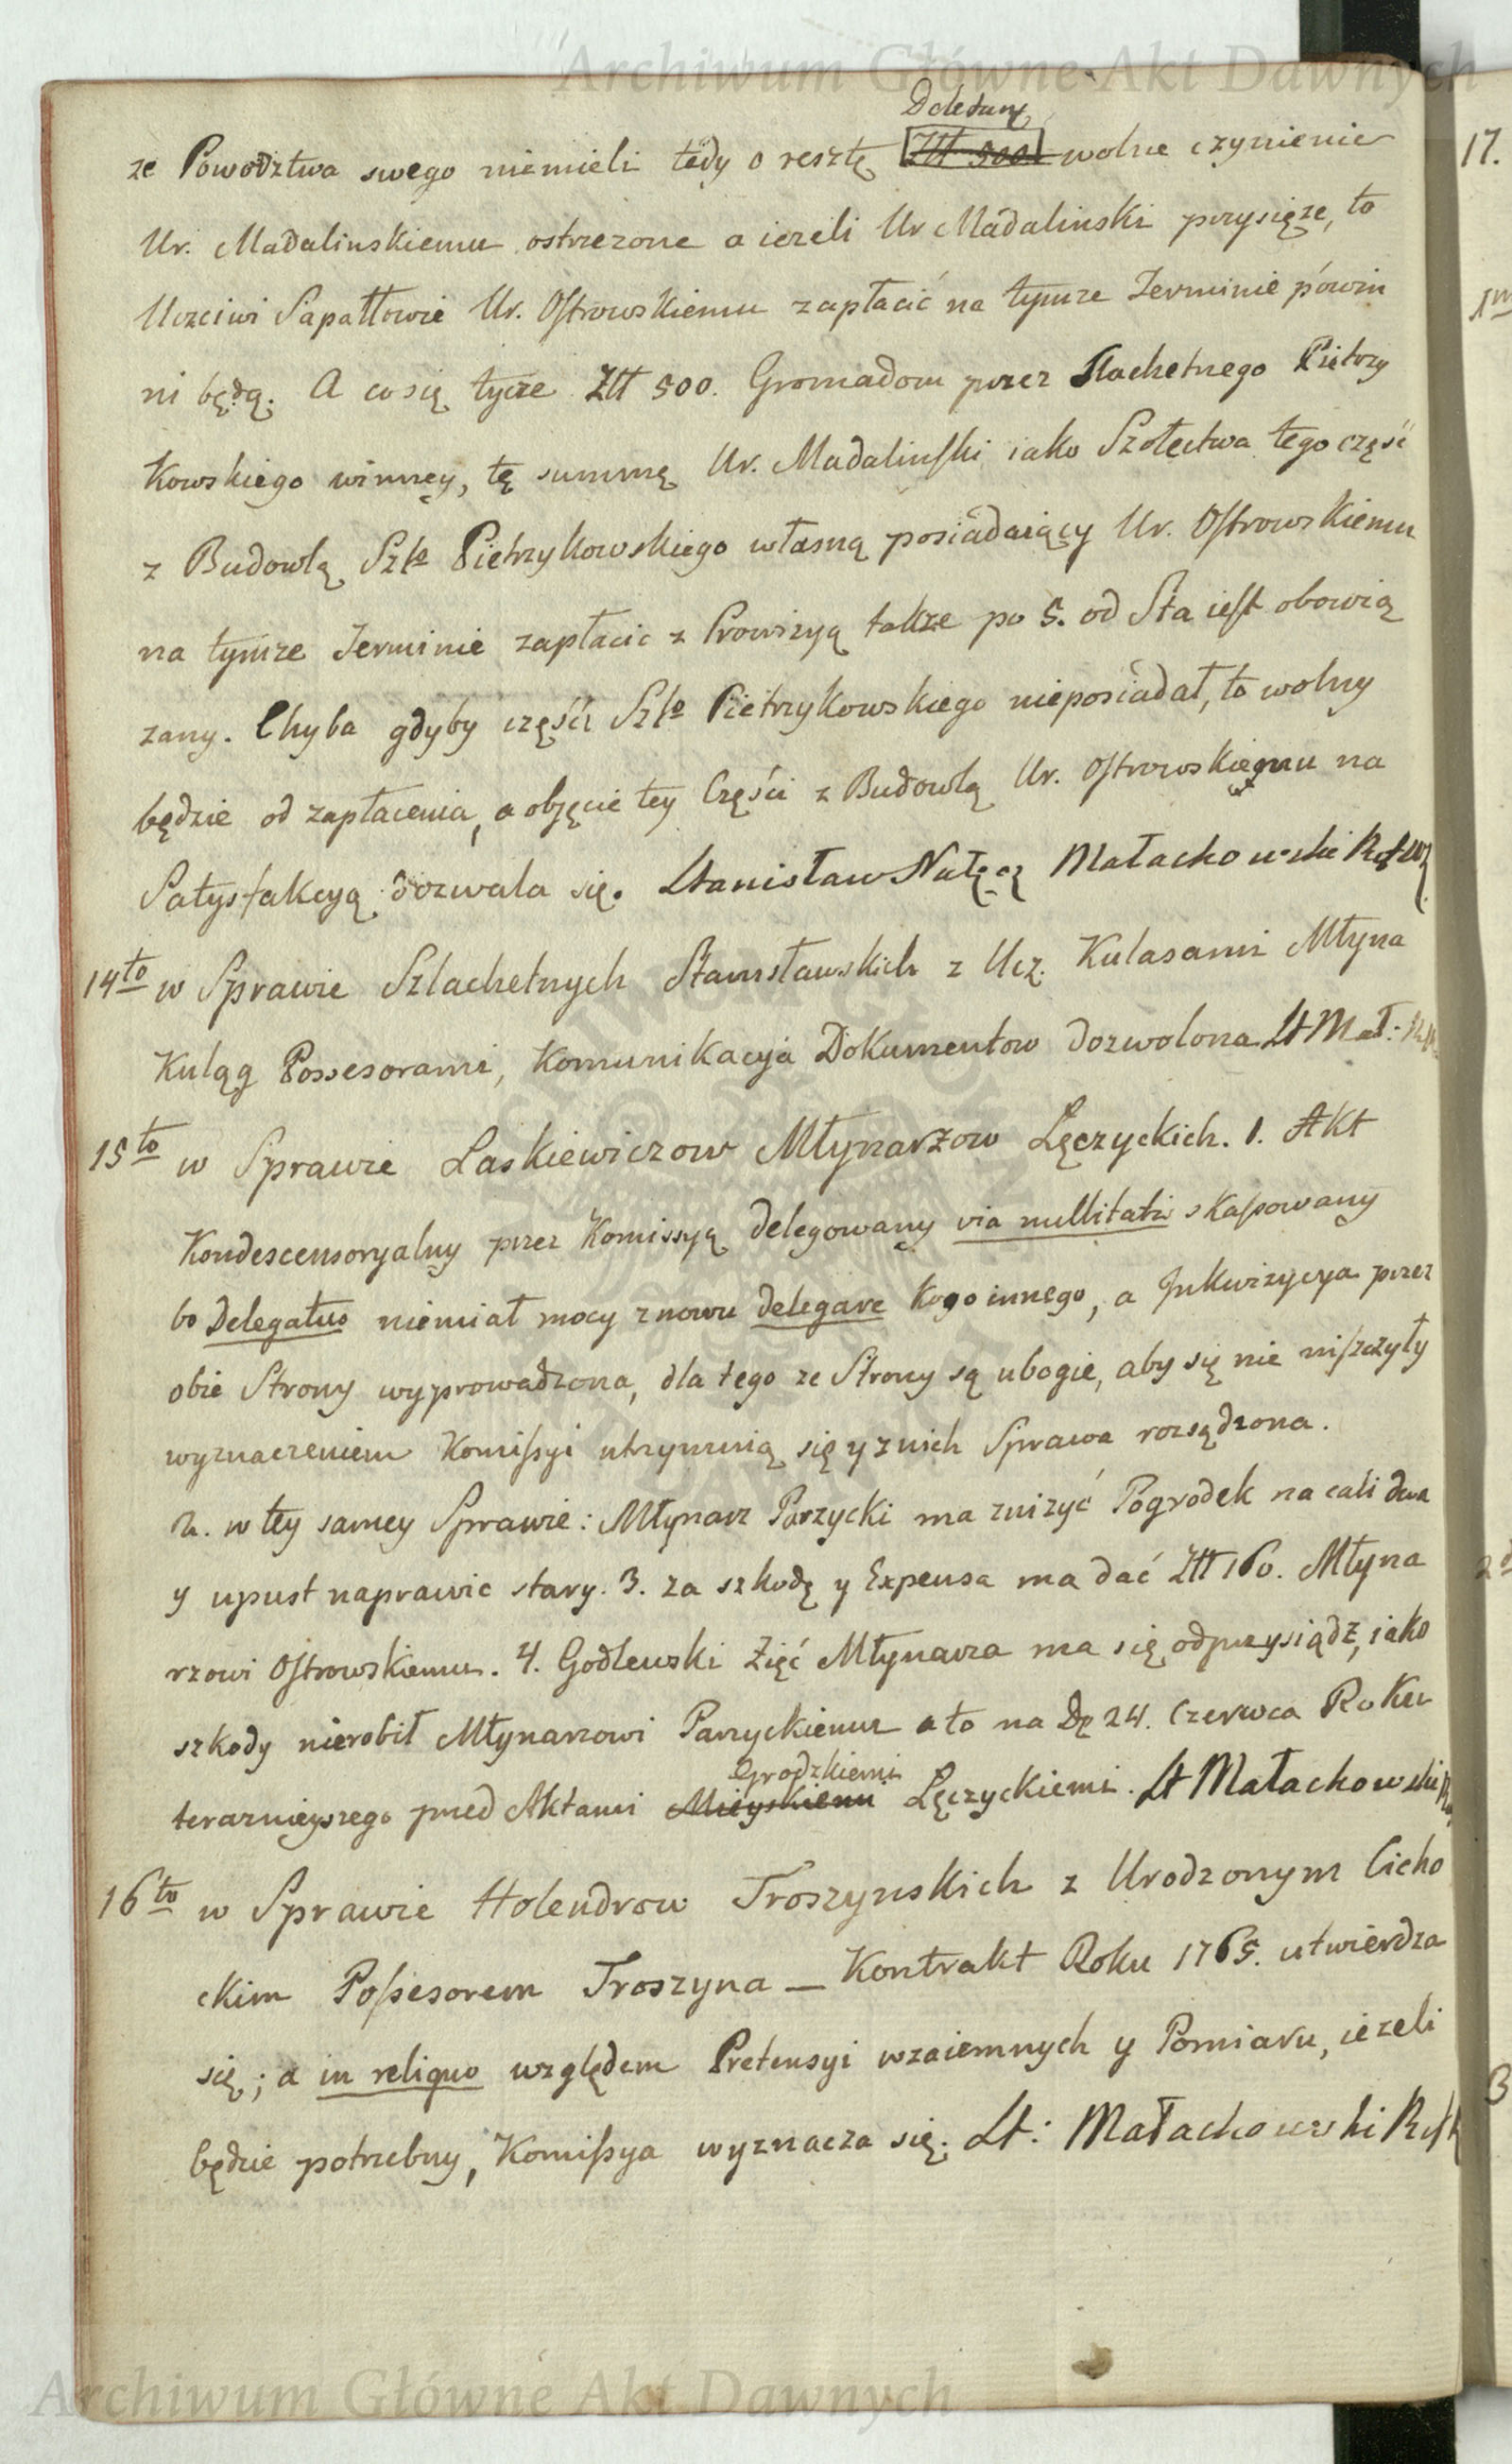 Archiwum Główne Akt Dawnych
Doletury
ze Powodztwa swego niemieli tedy o resztę Złł 500 wolne czynienie
Ur. Madalinskiemu ostrzezone a iezeli Ur Madalinski przysięze, to
Uczciwi Sapałłowie Ur. Ostrowskiemu zapłacić na tymze Terminie powin
ni będą. A co się tycze Złł 500. Gromadom przez Slachetnego Pietrzy
kowskiego winney, tę summę Ur. Madalinski iako Szołectwa tego część
z Budowlą Szłº Pietrzykowskiego własną posiadaiący Ur. Ostrowskiemu
na tymze Terminie zapłacic z Prowizyą takze po 5. od Sta iest obowią
zany. Chyba gdyby części Szłº Pietrzykowskiego nieposiadał, to wolny
będzie od zapłacenia, a objęcie tey Części z Budowlą Ur. Ostrowskiemu na
Satysfakcyą dozwala się. Stanisław Nałęcz Małachowski
14to w Sprawie Szlachetnych Stanisławskich z Ucz. Kulasami Młyna
Kuląg Possesorami, Komunikacyia Dokumentow dozwolona St Mał:
15to w Sprawie Laskiewiczow Młynarzow Łęczyckich. 1. Akt
Kondescensoryalny przez Komissyą delegowany via nullitatis skasowany
bo Delegatus niemiał mocy znowu delegare kogo innego, a Inkwizycya przez
obie Strony wyprowadzona, dla tego ze Strony są ubogie, aby się nie niszczyły
wyznaczeniem Komissyi utrzymuią się y z nich Sprawa rozsądzona.
2. w tey samey Sprawie: Młynarz Parzycki ma znizyć Pogrodek na cali dwa
y upust naprawic stary. 3. za szkodę y Expensa ma dać Złł 160. Młyna
rzowi Ostrowskiemu. 4. Godlewski Zięć Młynarza ma się odprzysiądz, iako
szkody nierobił Młynarzowi Parzyckiemu a to na Dz 24. Czerwca Roku
Grodzkiemi
terazniejszego przed Aktami Mieyskiemi Łęczyckiemi. St Małachowski
16to w Sprawie Holendrow Troszynskich z Urodzonym Cicho
ckim Possesorem Troszyna — Kontrakt Roku 1765. utwierdza
się; a in reliquo względem Pretensyi wzaiemnych y Pomiaru, iezeli
będzie potrzebny, Komissya wyznacza się. St: Małachowski
17.
Archiwum Główne Akt Dawnych